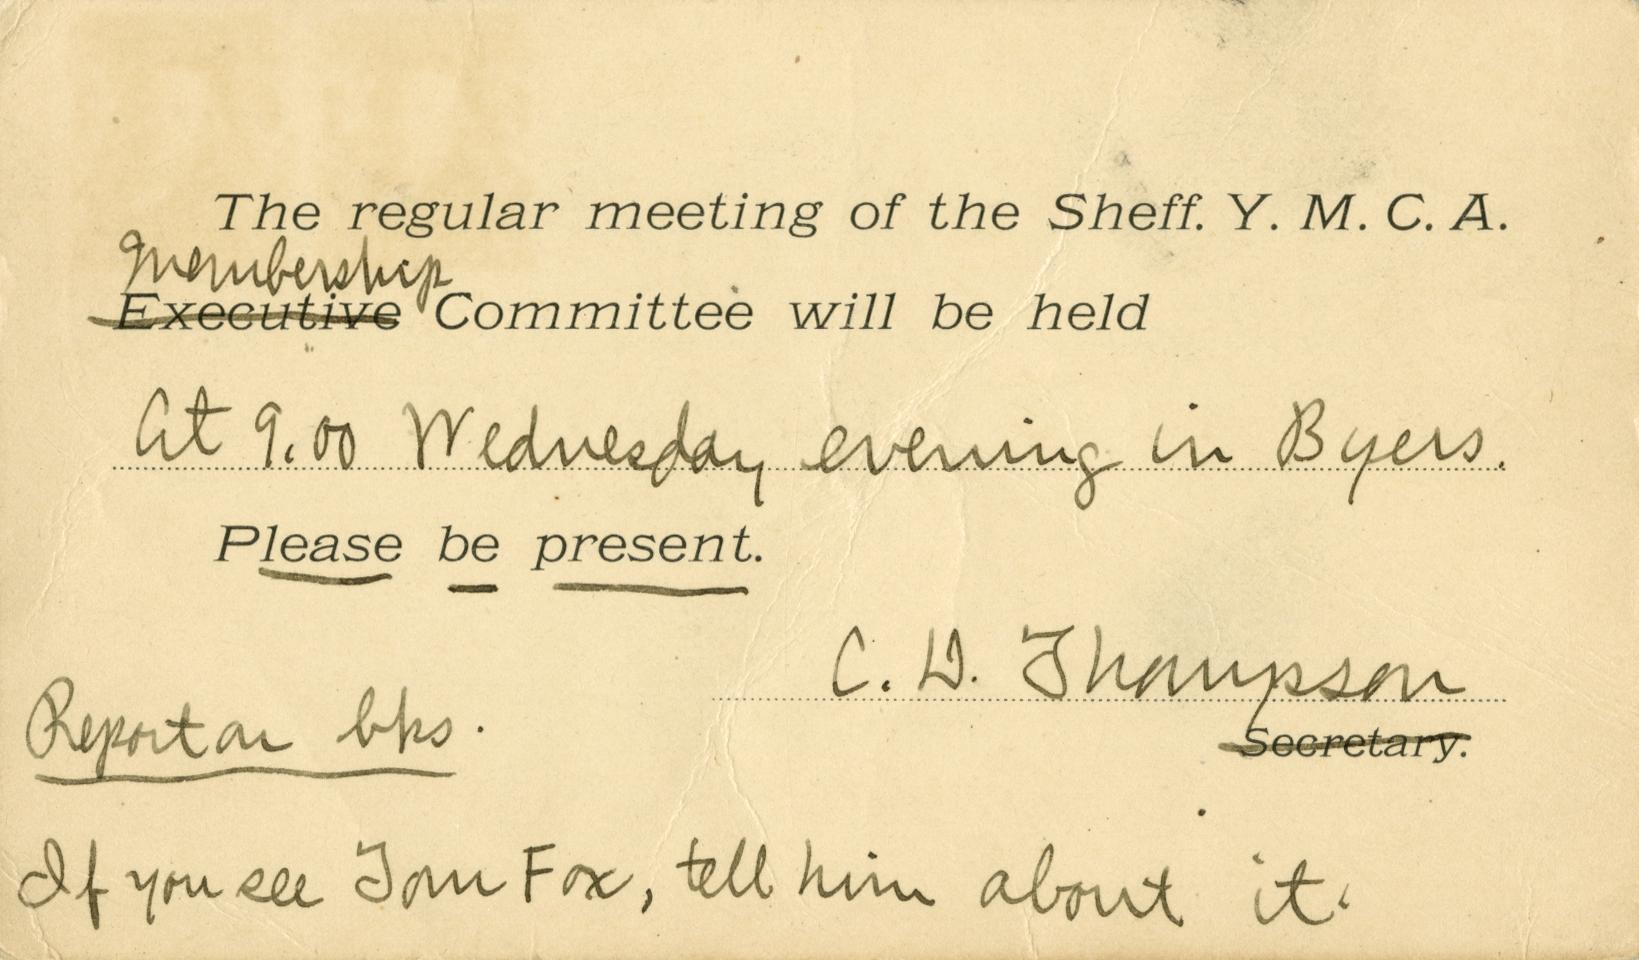 The regular meeting of the Sheff. Y. M. C. A.
Membership
Executive Committee will be held
At 9.00 Wednesday evening in Byers.
Please be present.
C. D. Thompson
Secretary.
Report on bks.
If you see Tom Fox, tell him about it.